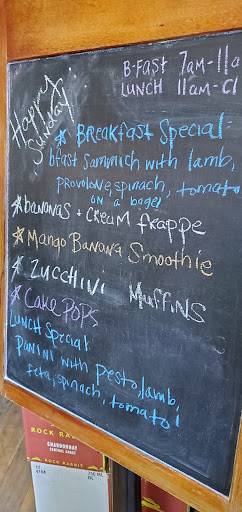 Happy Sunday!
B-FAST 7am-11a
LUNCH 11am-cl
* BREAKFAST Special-
bfast sammich with lamb,
provolone, spinach, tomato
on a bagel
* bananas + CREAM frappe
* Mango Banana Smoothie
* Zucchini Muffins
* Cake POPS
LUNCH Special
Panini with pesto, lamb,
feta, spinach, tomato!
ROCK RA
CHARDONNAY
CENTRAL COAST
ROCK RABBIT
12
750 ML